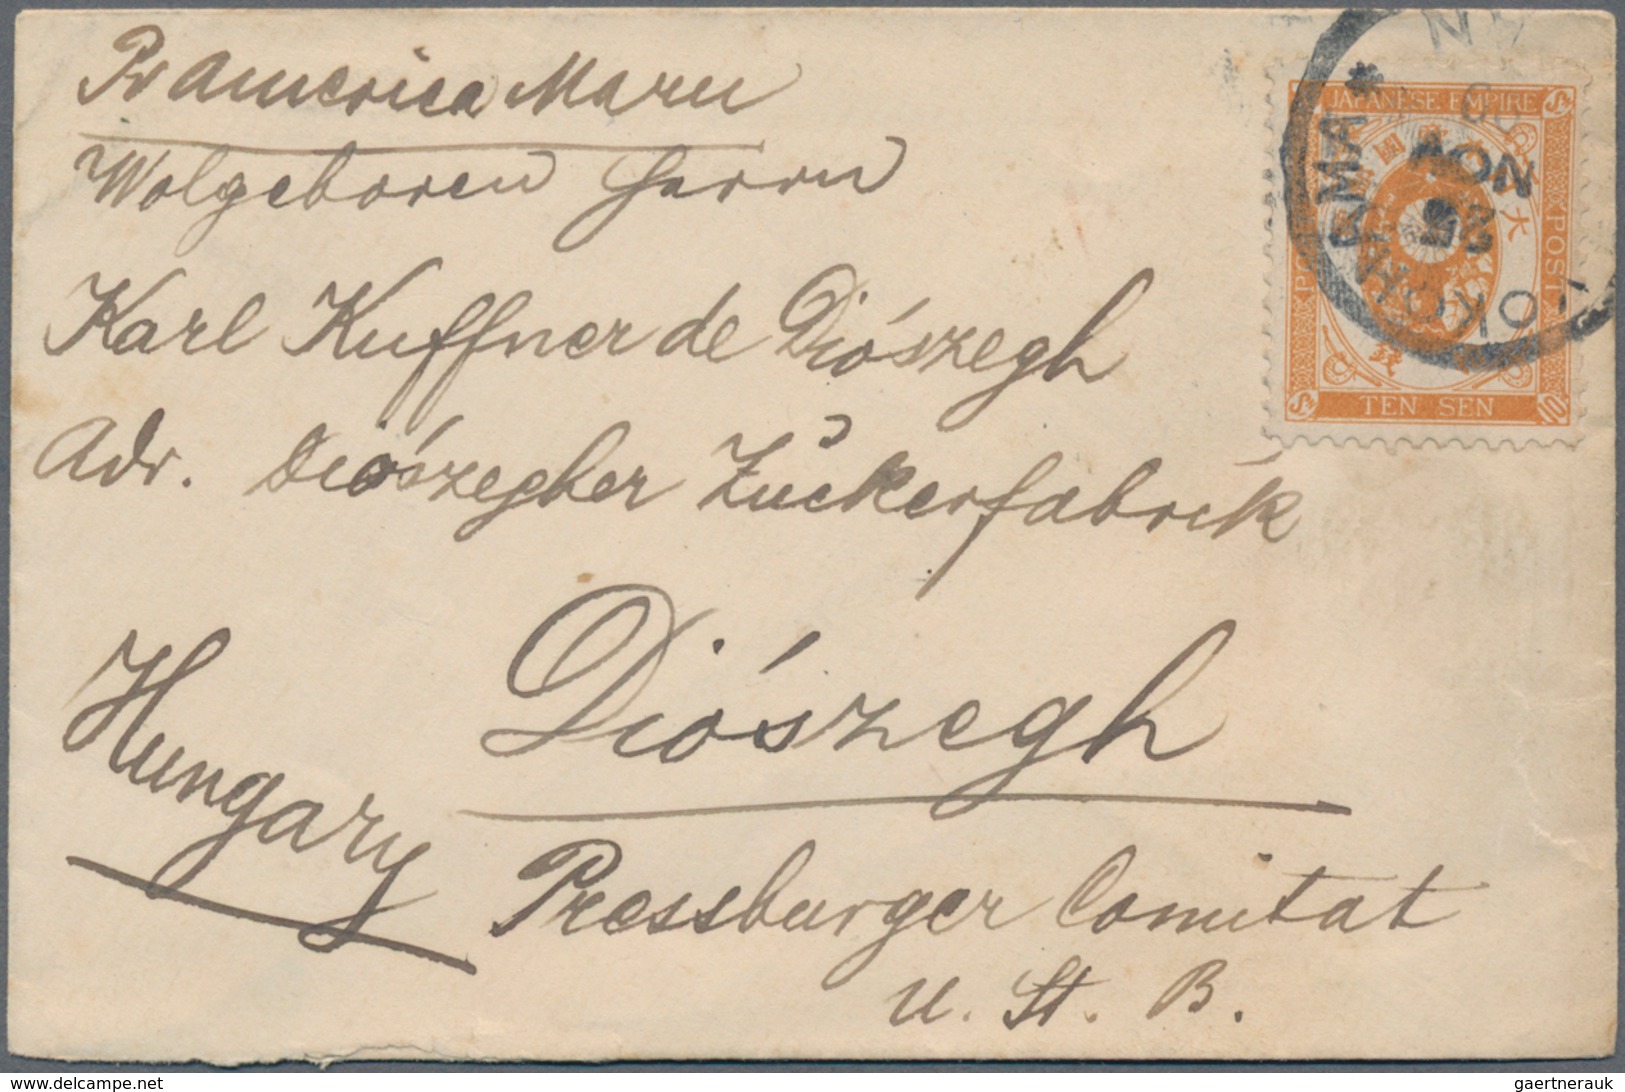 Pr America Maru
Wolgeboren Herrn
Karl Kuffner de Diószegh
Adr. Diószegher Zuckerfabrik
Diószegh
Hungary
Pressburger Comitat
U. St. B.
JAPANESE EMPIRE
大
POST
錢
TEN SEN
10
YOKOHAMA
NOV
delcampe.net
gaertnerauk